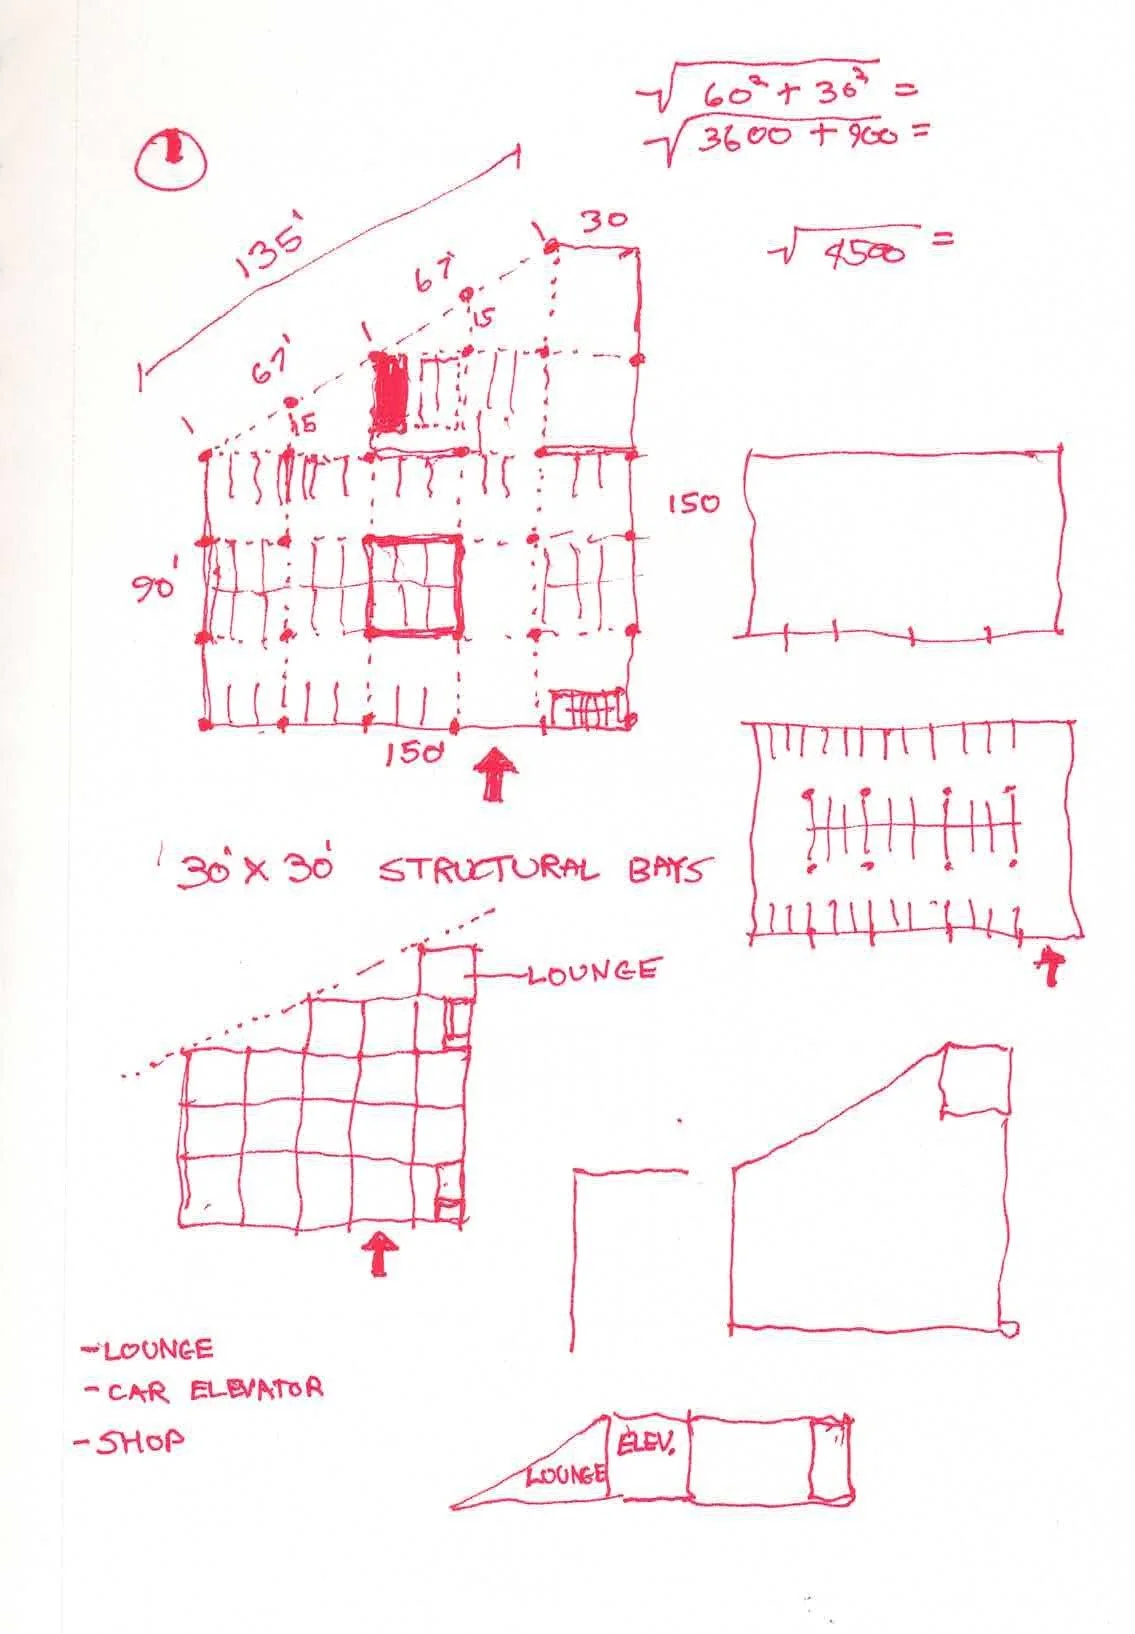 √60² + 30² =
√3600 + 900 =
√4500 =
135'
30
67'
15
67'
15
90'
150
150'
30' X 30' STRUCTURAL BAYS
LOUNGE
- LOUNGE
- CAR ELEVATOR
- SHOP
ELEV.
LOUNGE